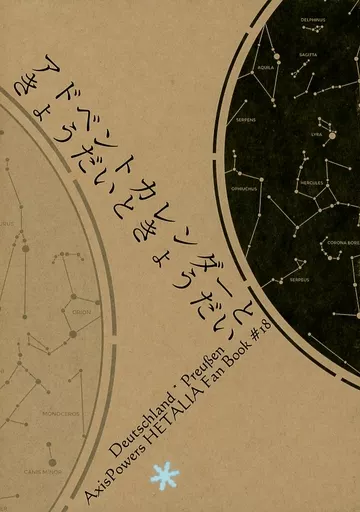 アドベントカレンダーと
きょうだいときょうだい
Deutschland・Preußen
AxisPowers HETALIA Fan Book #18
DELPHINUS
SAGITTA
AQUILA
SERPENS
LYRA
HERCULES
OPHIUCHUS
CORONA BOREALIS
SERPENS
ORION
MONOCEROS
CANIS MINOR